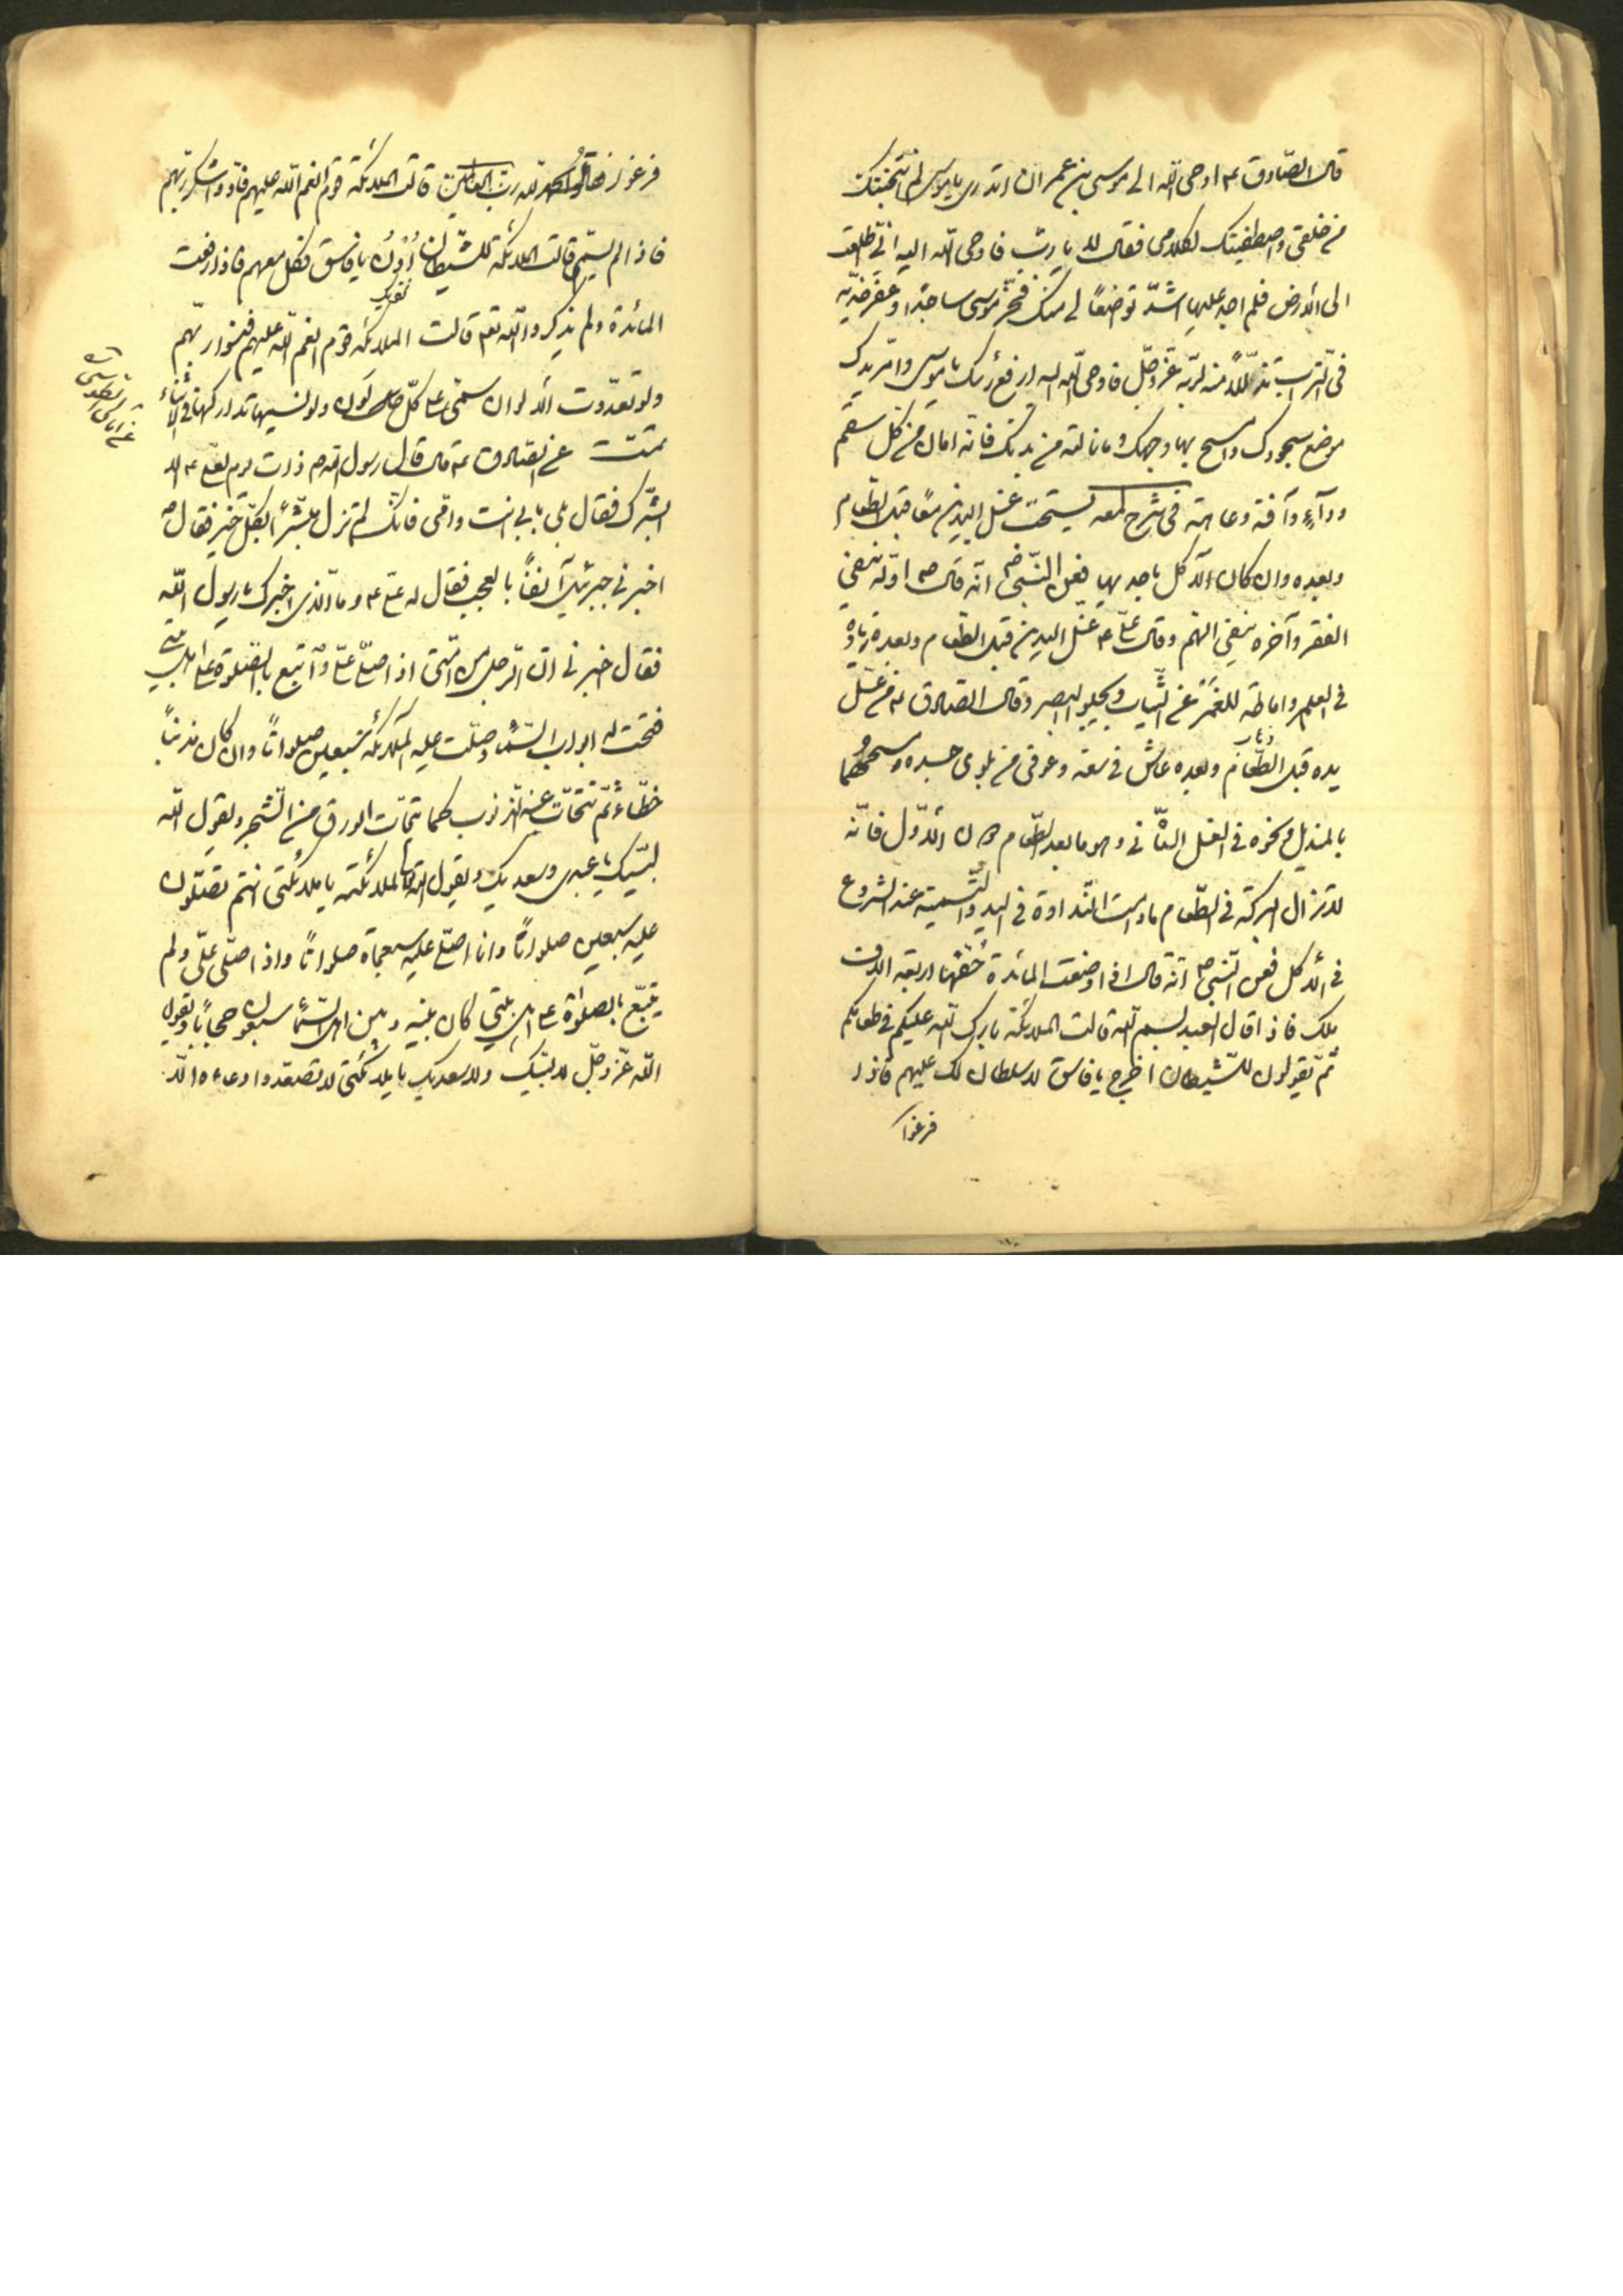 قال الصّادق ع اوحى اللّه الى موسى بن عمران اتدرى يا موسى لم انتجبتك
من خلقى واصطفيتك لكلامى فقال لا يا ربّ فاوحى اللّه اليه انّى اطّلعت
الى الأرض فلم اجد عليها اشدّ تواضعًا لى منك فخرّ موسى ساجدًا وعفّر خدّيه
فى التّراب تذلّلًا منه لربّه عزّ وجلّ فاوحى اللّه اليه ارفع رأسك يا موسى وامرّ يدك
موضع سجودك وامسح بها وجهك وما نالته من بدنك فانّه امان من كل سقم
ودآءٍ وآفة وعاهة فى شرح لمعه يستحبّ غسل اليدين معًا قبل الطّعام
وبعده وان كان الأكل باحديهما فعن النّبى ص انّه قال ص اوّله ينفى
الفقر وآخره ينفى الهمّ وقال علىّ ع غسل اليدين قبل الطّعام وبعده زيادة
فى العلم واماطة للغمر عن الثّياب ويجلو البصر وقال الصّادق ع من غسل
يده قبل الطّعام وبعده عاش فى سعة وعوفى من بلوى جسده ومسحهما
بالمنديل ونحوه فى الغسل الثّانى وهو ما بعد الطّعام دون الأوّل فانّه
لا تزال البركة فى الطّعام مادامت النّداوة فى اليد والتّسمية عند الشروع
فى الأكل فعن النّبى ص انّه قال اذا وضعت المائدة حفّها اربعة آلاف
ملك فاذا قال العبد بسم اللّه قالت الملائكة بارك اللّه عليكم فى طعامكم
ثمّ يقولون للشّيطان اخرج يا فاسق لا سلطان لك عليهم فاذا
فرغوا
فرغوا فقالوا الحمد للّه ربّ العالمين قالت الملائكة قوم انعم اللّه عليهم فادّوا شكر ربّهم
فاذا لم يسمّ قالت الملائكة للشّيطان ادن يا فاسق فكل معهم فاذا رفعت
المائدة ولم يذكروا اللّه تعم قالت الملائكة قوم انعم اللّه عليهم فنسوا ربّهم
ولو تعدّدت ألوان سمّى على كلّ لون ولو نسيها تداركها فى الأثناء
تمّت عن الصّادق ع قال قال رسول اللّه ص ذات يوم لعلى ع الا
ابشّرك فقال بلى بابى انت وامّى فانّك لم تزل مبشّرًا بكلّ خير فقال ص
اخبرنى جبرئيل آنفًا بالعجب فقال له علىّ ع وما الّذى اخبرك يا رسول اللّه
فقال اخبرنى انّ الرّجل من امّتى اذا صلّى علىّ واتبع بالصّلوة على اهل بيتى
فتحت له ابواب السّماء وصلّت عليه الملائكة سبعين صلواتًا وان كان مذنبًا
خطّاءً ثمّ تتحاتّ عنه الذّنوب كما يتحاتّ الورق من الشّجر ويقول اللّه
لبّيك يا عبدى وسعديك ويقول اللّه لملائكته يا ملائكتى انتم تصلّون
عليه سبعين صلواتًا وانا اصلّى عليه سبعمأة صلواتًا واذا صلّى علىّ ولم
يتبع بالصلوة على اهل بيتى كان بينه وبين السّماء سبعون حجابًا ويقول
اللّه عزّ وجلّ لا لبّيك ولا سعديك يا ملائكتى لا تصعدوا دعاءه الّا